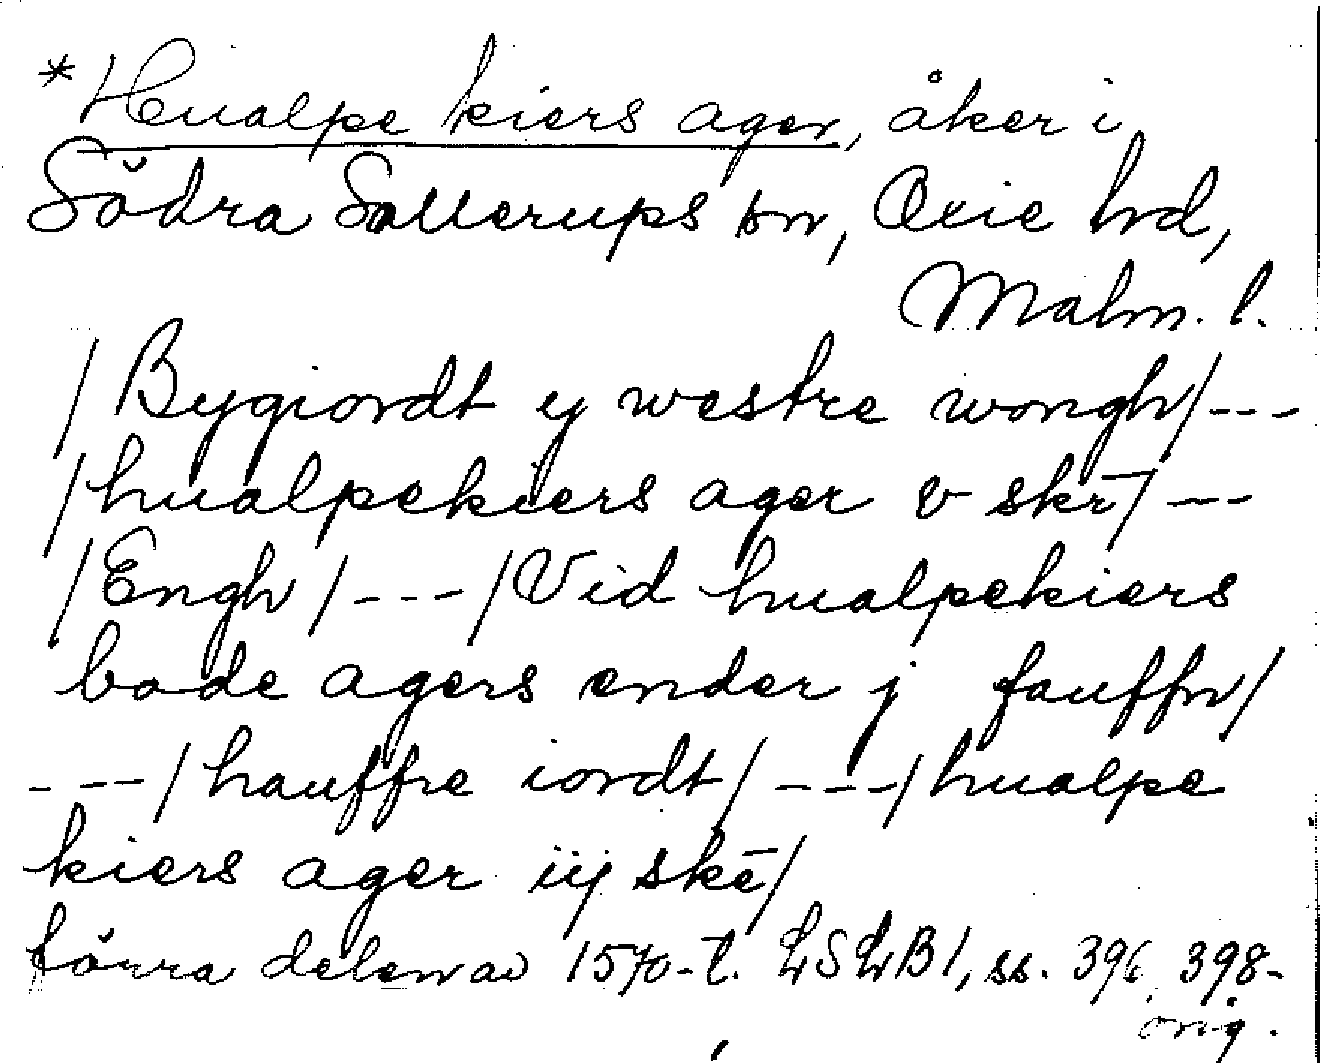 *Hualpe kiers ager, åker i
Södra Sallerups sn, Oxie hd,
Malm. l.
/Bygiordt y westre wongh/---
/hualpekiers ager v skr̄/---
/Engh/---/Vid hualpekiers
bode agers ender j fauffn/
---/hauffre iordt/---/hualpe
kiers ager iij skē/
förra delen av 1570-t. LSLB1, ss. 396, 398-
orig.